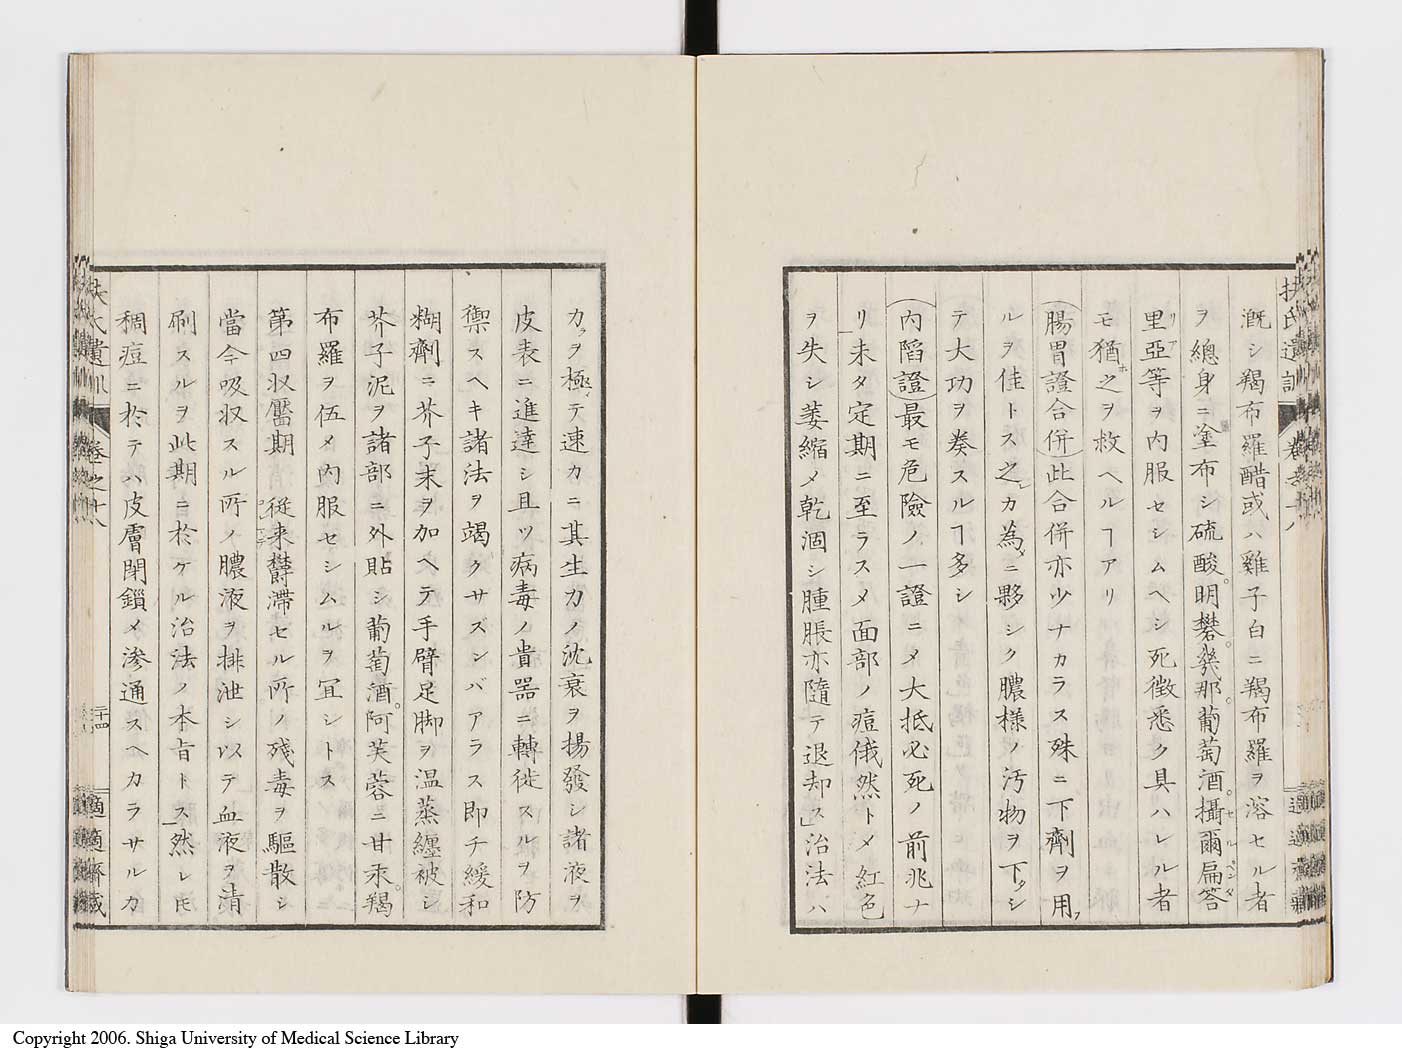 漑シ羯布羅醋或ハ雞子白ニ羯布羅ヲ溶セル者
ヲ總身ニ塗布シ硫酸。明礬。幾那。葡萄酒。攝爾扁答
里亞等ヲ内服セシムヘシ死徴悉ク具ハレル者
モ猶之ヲ救ヘルヿアリ
(腸胃證合併)此合併亦少ナカラス殊ニ下劑ヲ用
ルヲ佳トス之カ為ニ夥シク膿様ノ汚物ヲ下シ
テ大功ヲ奏スルヿ多シ
(内陷證)最モ危險ノ一證ニメ大抵必死ノ前兆ナ
リ未タ定期ニ至ラスメ面部ノ痘俄然トメ紅色
ヲ失シ萎縮メ乾涸シ腫脹亦隨テ退却ス」治法ハ
扶氏遺訓
卷之十八
力ヲ極テ速カニ其生力ノ沈衰ヲ揚發シ諸液ヲ
皮表ニ進達シ且ツ病毒ノ貴器ニ轉徙スルヲ防
禦スヘキ諸法ヲ竭クサズンバアラス即チ緩和
糊劑ニ芥子末ヲ加ヘテ手臂足脚ヲ温蒸纏被シ
芥子泥ヲ諸部ニ外貼シ葡萄酒。阿芙蓉ニ甘汞。羯
布羅ヲ伍メ内服セシムルヲ冝シトス
第四収靨期 従来欝滯セル所ノ殘毒ヲ驅散シ
當今吸収スル所ノ膿液ヲ排泄シ以テ血液ヲ清
刷スルヲ此期ニ於ケル治法ノ本旨トス」然レ𪜈
稠痘ニ於テハ皮膚閉鎖メ滲通スヘカラサルカ
卷之十八
二十四
適適齋藏
Copyright 2006. Shiga University of Medical Science Library